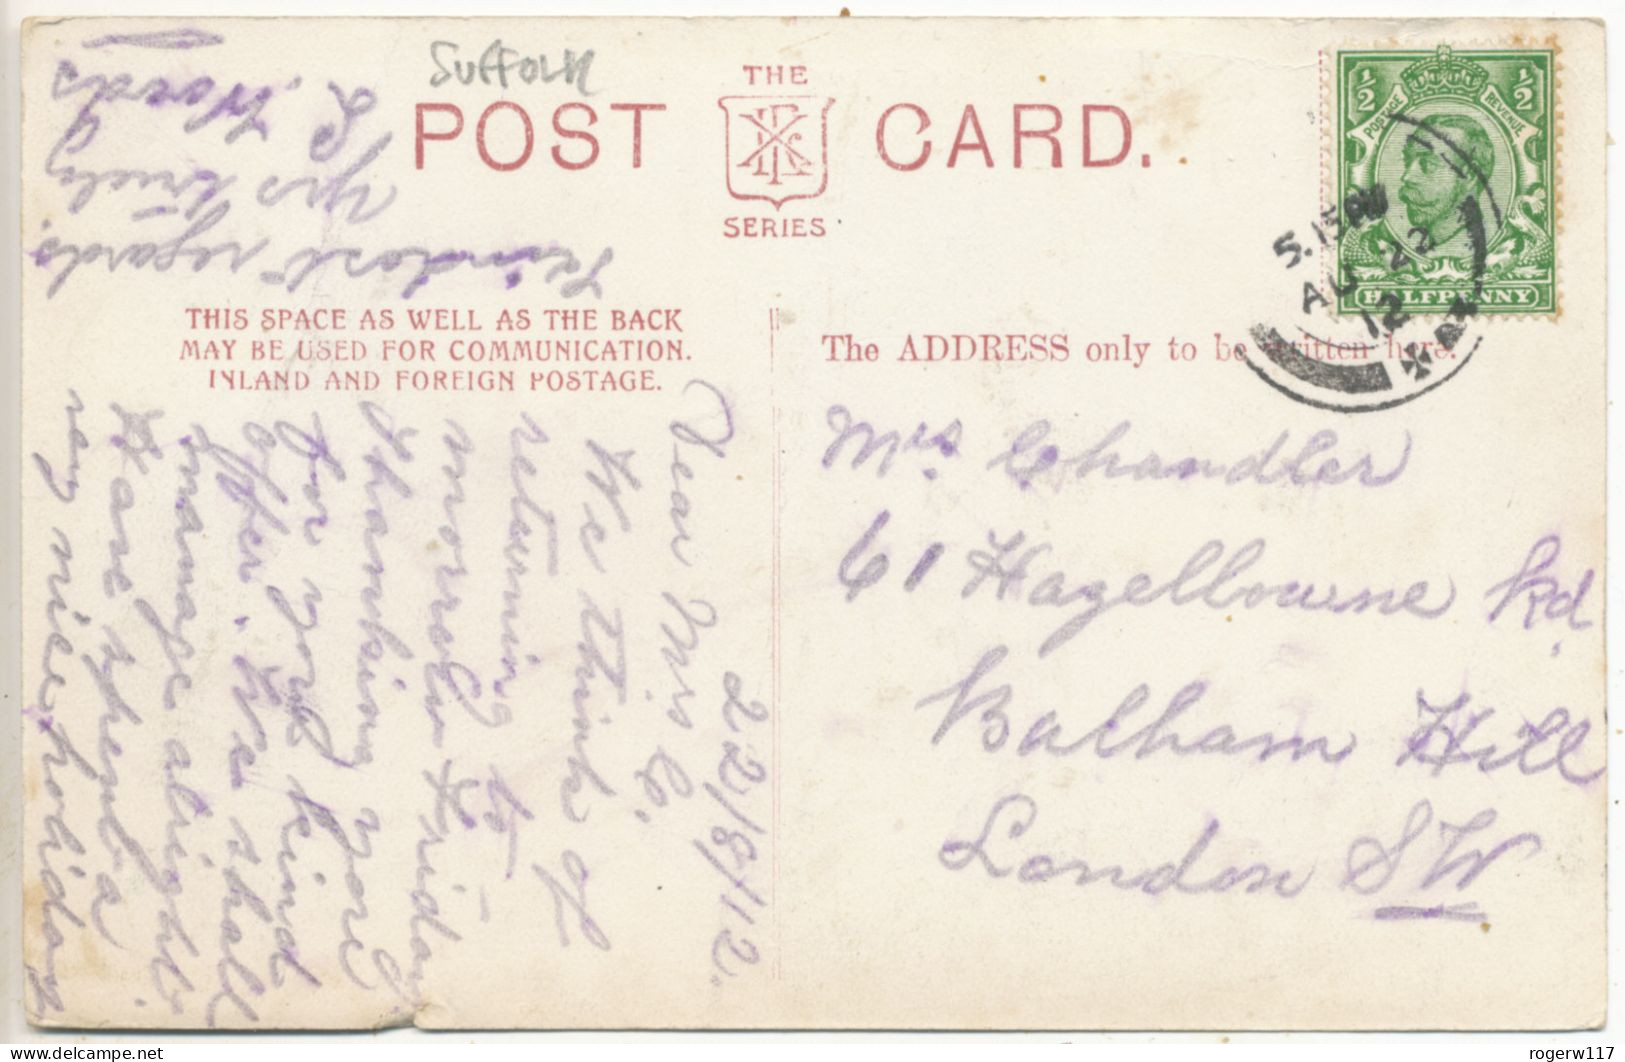 Suffolk
POST CARD.
THE
SERIES
½ ½
POSTAGE REVENUE
HALFPENNY
5.15PM
AU 22
12
THIS SPACE AS WELL AS THE BACK
MAY BE USED FOR COMMUNICATION.
INLAND AND FOREIGN POSTAGE.
The ADDRESS only to be written here.
Mrs. Chandler
61 Hazelbourne Rd.
Balham Hill
London SW
22/8/12.
Dear Mrs C.
We think of
returning to
morrow Friday
thanking you
for your kind
offer. We shall
manage alright.
Have spent a
very nice holiday
Kindest regards.
Yrs truly
L. Woods
rogerw117
delcampe.net